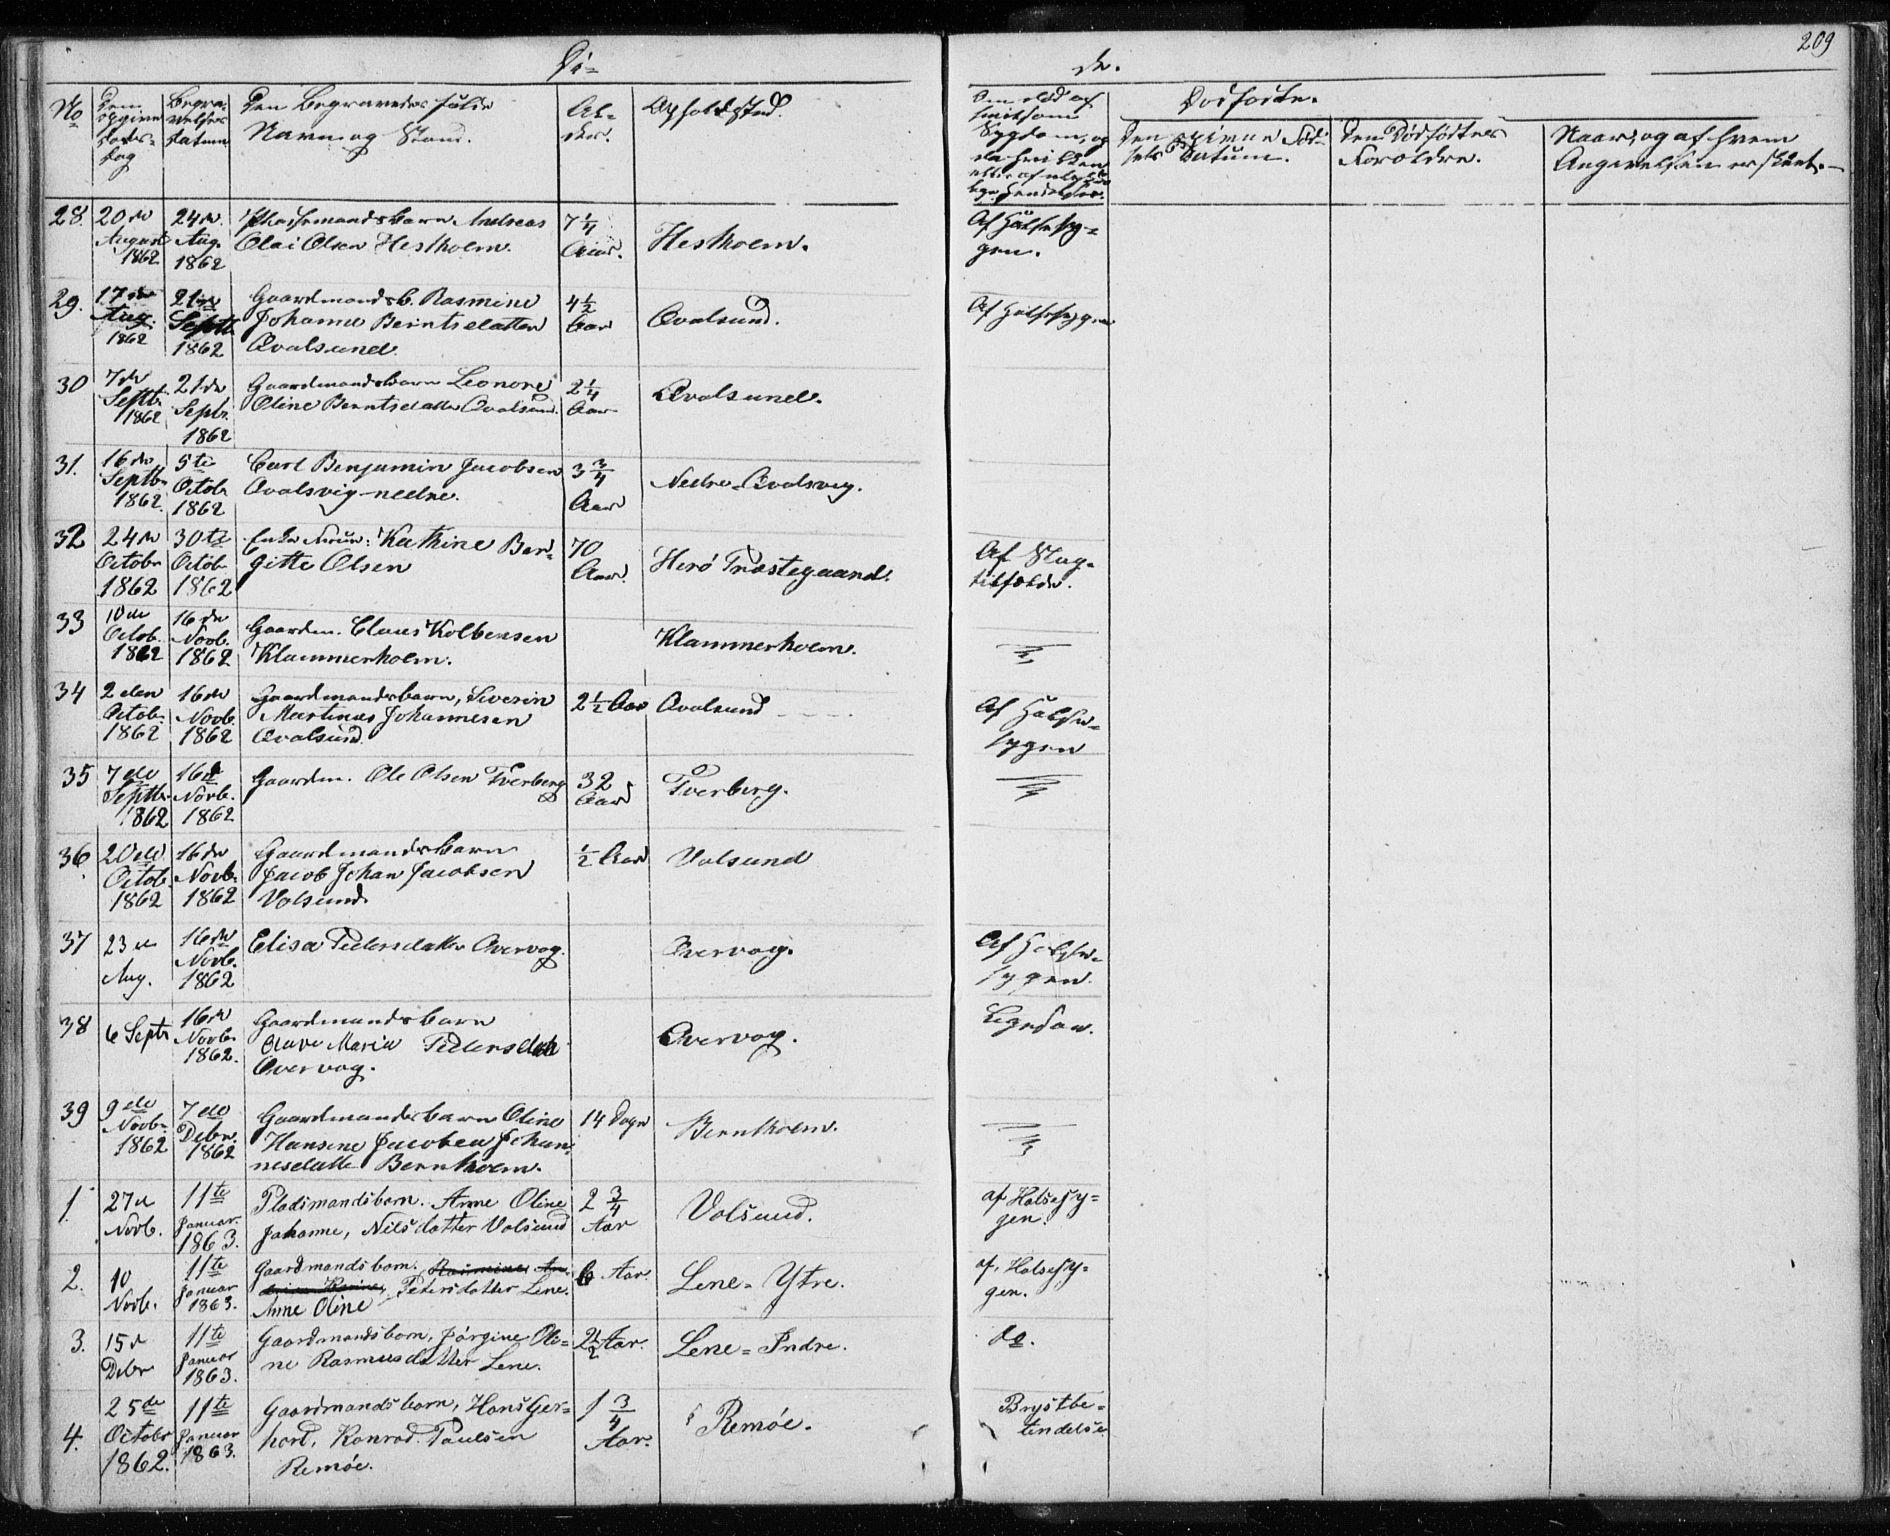 209
Dö-
de.
No
Den
opgivne
Døds-
dag
Begra-
velses
Datum
Den Begravedes fulde
Navn og Stand.
Al-
der.
Opholdssted.
Om død af
smitsom
Sygdom, og
da hvilken
Dødfødte.
Den opgivne Föd-
sels Datum.
Den Dødfødtes
Forældre.
Naar, og af hvem
Angivelsen er skeet.
28. 20de August 1862 24de Aug. 1862 Pladsmandsbarn Andreas
Olai Olsen Hestholm. 7 1/4 Aar. Hestholm. Af Halssy-
gen.
29. 17de Aug. 1862 21de Septb. 1862 Gaardmandsb. Rasmine
Johanne Berntsdatter
Qvalsund. 4 1/2 Aar Qvalsund. Af Halssygen
30 7de Septb. 1862 21de Septbr. 1862 Gaardmandsbarn Leonore
Oline Berntsdatter Qvalsund. 2 1/4 Aar Qvalsund.
31. 16de Septb. 1862. 5te Octob. 1862 Carl Benjamin Jacobsen
Qvalsvig-nedre. 3 3/4 Aar Nedre-Qvalsvig.
32 24de Octobr 1862 30te Octob. 1862 Enke Kathine Ber-
gitte Olsen 70 Aar. Herö Præstegaard. Af Slag-
tilfælde.
33 10de Octob. 1862 16de Novb. 1862 Gaardm. Claus Kolbensen
Klammerholm. Klammerholm.
34 2den Octob. 1862 16de Novb. 1862 Gaardmandsbarn, Severin
Martinus Johannesen
Qvalsund. 2 1/2 Aar Qvalsund Af Halss-
sygen
35 7de Septbr. 1862 16de Novb. 1862 Gaardm. Ole Olsen Tverberg 32 Aar Tverberg.
36. 20de Octob. 1862 16de Novb. 1862 Gaardmandsbarn
Jacob Johan Jacobsen
Volsund. 1/2 Aar Volsund
37 23de Aug. 16de Novb. 1862 Elisa Pedersdatter Overvog. Overvog. Af Halss-
sygen.
38 6 Septr 16de Novb. 1862. Gaardmandsbarn
Olave Maria Pedersdatt
Overvog. Overvog. Ligesaa.
39 9de Novbr. 1862 7de Debr. 1862 Gaardmandsbarn Oline
Hansine Jacobea Johan-
nesdatte Bernholm. 14 Dage Bernholm.
1. 27de Novb. 11te Januar. 1863. Pladsmandsbarn. Anne Oline
Johanne, Nilsdatter Volsund 2 3/4 Aar Volsund. af Halssy-
gen.
2. 10 Novb. 11te Januar 1863. Gaardmandsbarn. Rasmine
Petersdatter Lene.
Anne Oline 6 Aar. Lene-Ytre. af. Halssy-
gen.
3. 15de Debr 11te Januar 1863. Gaardmandsbarn, Jörgine Oli-
ne Rasmusdatter Lene. 2 1/2 Aar. Lene-Indre. do.
4. 25de Octobr 1862. 11te Januar 1863. Gaardmandsbarn, Hans Ger-
hard, Konrad. Paulsen
Remöe. 1 3/4 Aar. Remöe. Brystbe-
tendelse